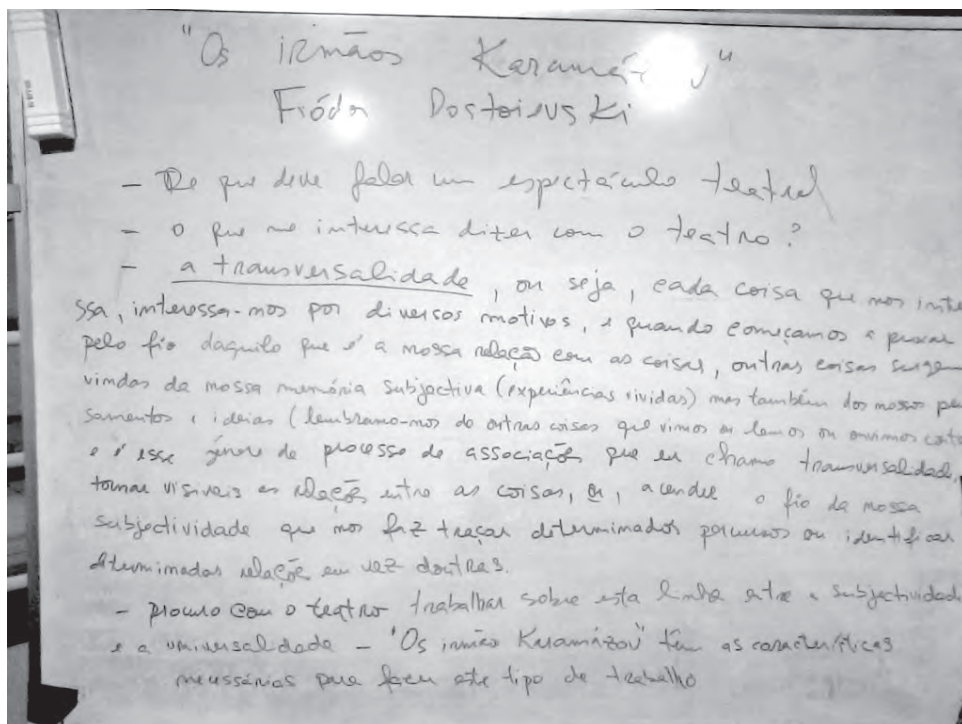 "Os irmãos Karamázov"
Fiódor Dostoievski
- De que deve falar um espectáculo teatral
- o que me interessa dizer com o teatro?
- a transversalidade, ou seja, cada coisa que nos inte
ssa, interessa-nos por diversos motivos, e quando começamos a puxar
pelo fio daquilo que é a nossa relação com as coisas, outras coisas surgem
vindas da nossa memória subjectiva (experiências vividas) mas também dos nossos pen
samentos e ideias (lembramo-nos de outras coisas que vimos ou lemos ou ouvimos
e é esse género de processo de associações que eu chamo transversalidade,
tornar visíveis as relações entre as coisas, ou, acender o fio da nossa
subjectividade que nos faz traçar determinados percursos ou identificar
determinadas relações em vez doutras.
- procuro com o teatro trabalhar sobre esta linha entre a subjectividade
e a universalidade - "Os irmão Karamázov" têm as características
necessárias para fazer este tipo de trabalho